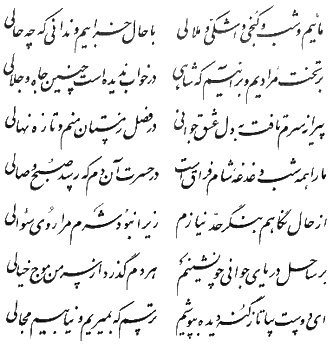 ماییم و شب و کنجی و اشکی و ملالی با حال خرابیم و ندانی که چه حالی
بر تخت مرادیم و بر آنیم که شاهی در خواب ندیده است چنین جاه و جلالی
پیرانه سرم تافت به دل عشق جوانی در فصل زمستان منم و تازه نهالی
ما را همه شب دغدغه شام فراق است در حسرت آن دم که رسد صبح وصالی
از حال نگاهم بنگر حد نیازم زیرا نبود شرم مرا روی سؤالی
بر ساحل دریای جوانی چو نشینم هر دم گذرد از سر من موج خیالی
ای دوست بیا تا ز گنه دیده بپوشیم ترسم که بمیریم و نیابیم مجالی